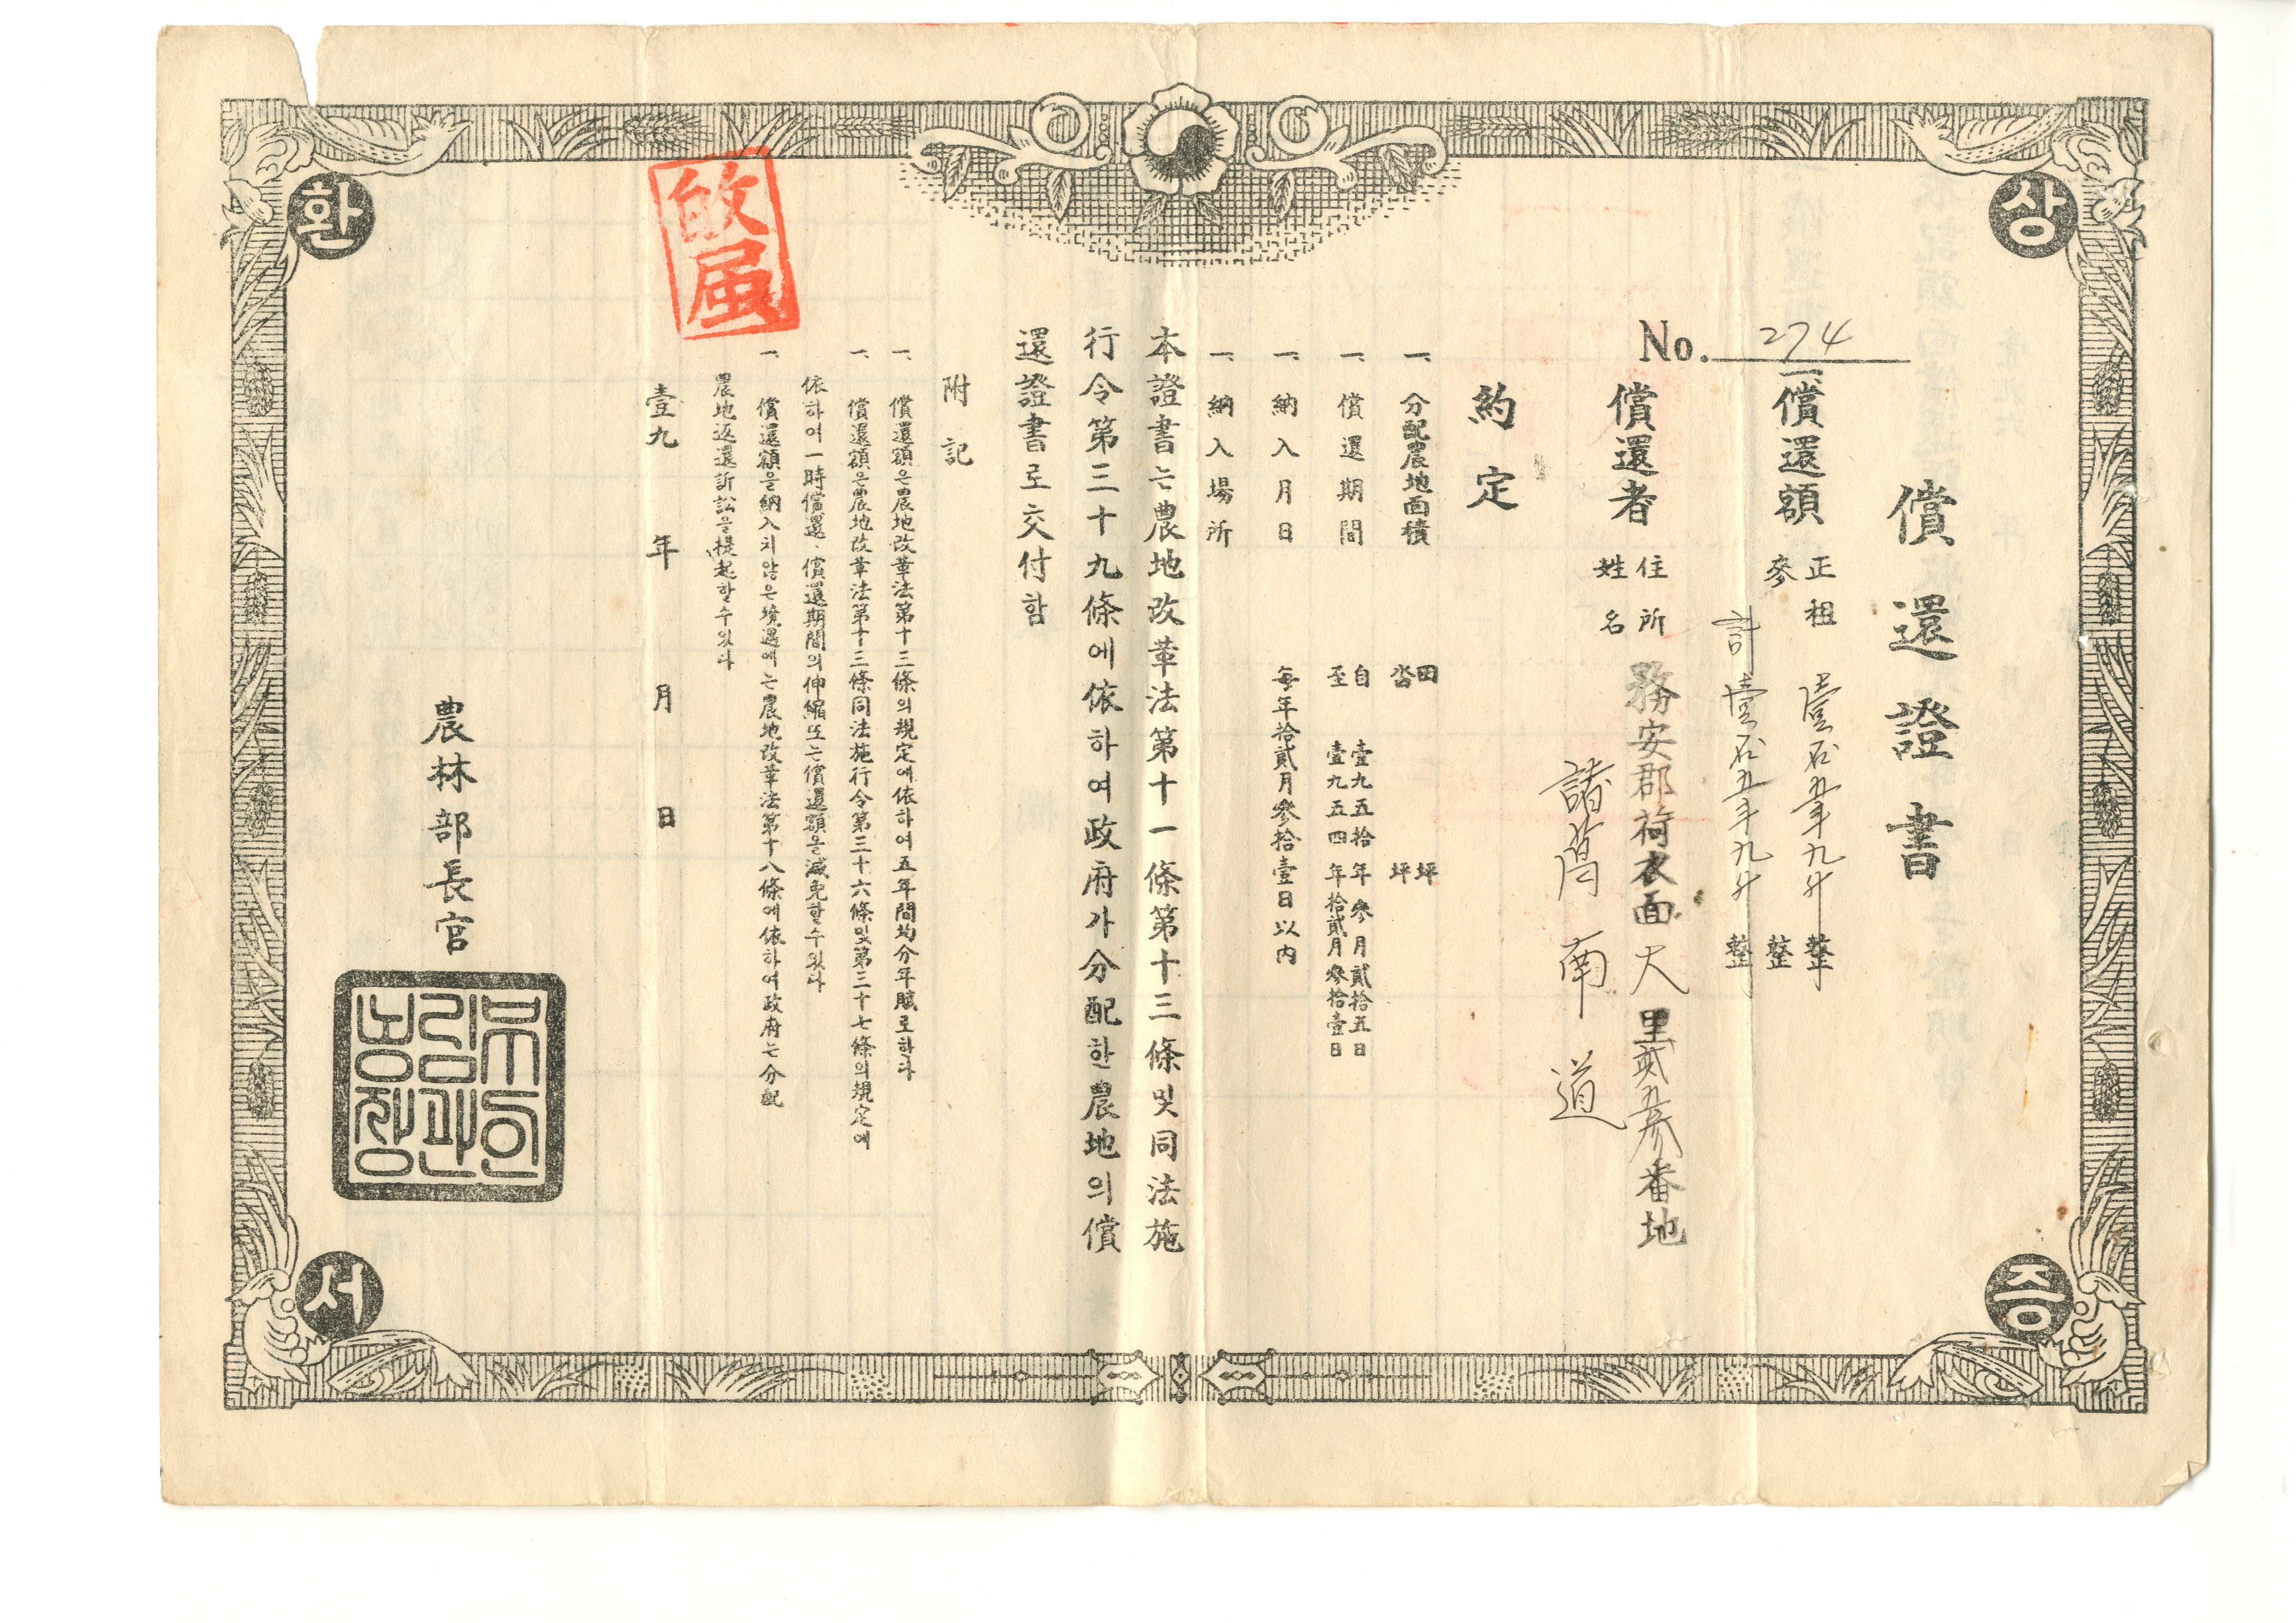 상환증서
償還證書
No. 274
一、償還額 正租 壹石五斗九升 整
參 整
計 壹石五斗九升 整
償還者 住所 務安郡荷衣面大里貳五參番地
姓名 諸葛南道
約定
一、分配農地面積 田 坪
畓 坪
一、償還期間 自 壹九五拾年參月貳拾五日
至 壹九五四年拾貳月參拾壹日
一、納入月日 每年拾貳月參拾壹日以內
一、納入場所
本證書는農地改革法第十一條第十三條및同法施
行令第三十九條에依하여政府가分配한農地의償
還證書로交付함
附記
一、償還額은農地改革法第十三條의規定에依하여五年間均分年賦로하다
一、償還額은農地改革法第十三條同法施行令第三十六條및第三十七條의規定에
依하여一時償還、償還期間의伸縮또는償還額을減免할수있다
一、償還額을納入치않은境遇에는農地改革法第十八條에依하여政府는分配
農地返還訴訟을提起할수있다
壹九 年 月 日
農林部長官
농림부장관의인